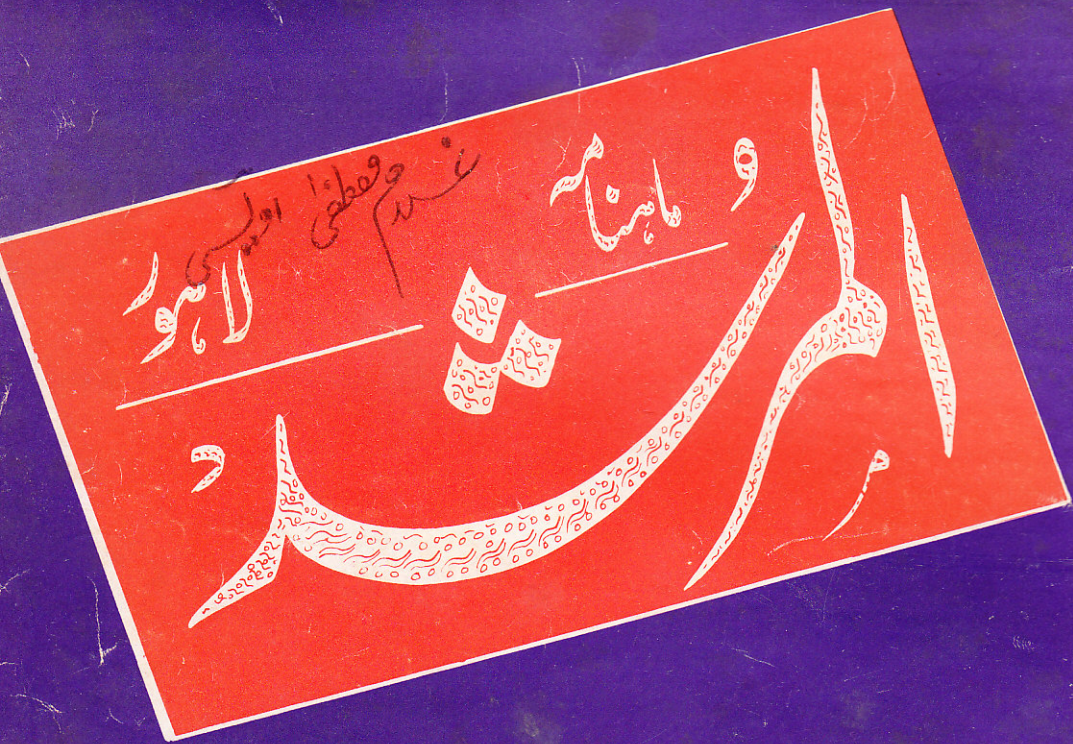 ماہنامہ
المرشد
لاہور
غلام مصطفیٰ اویسی